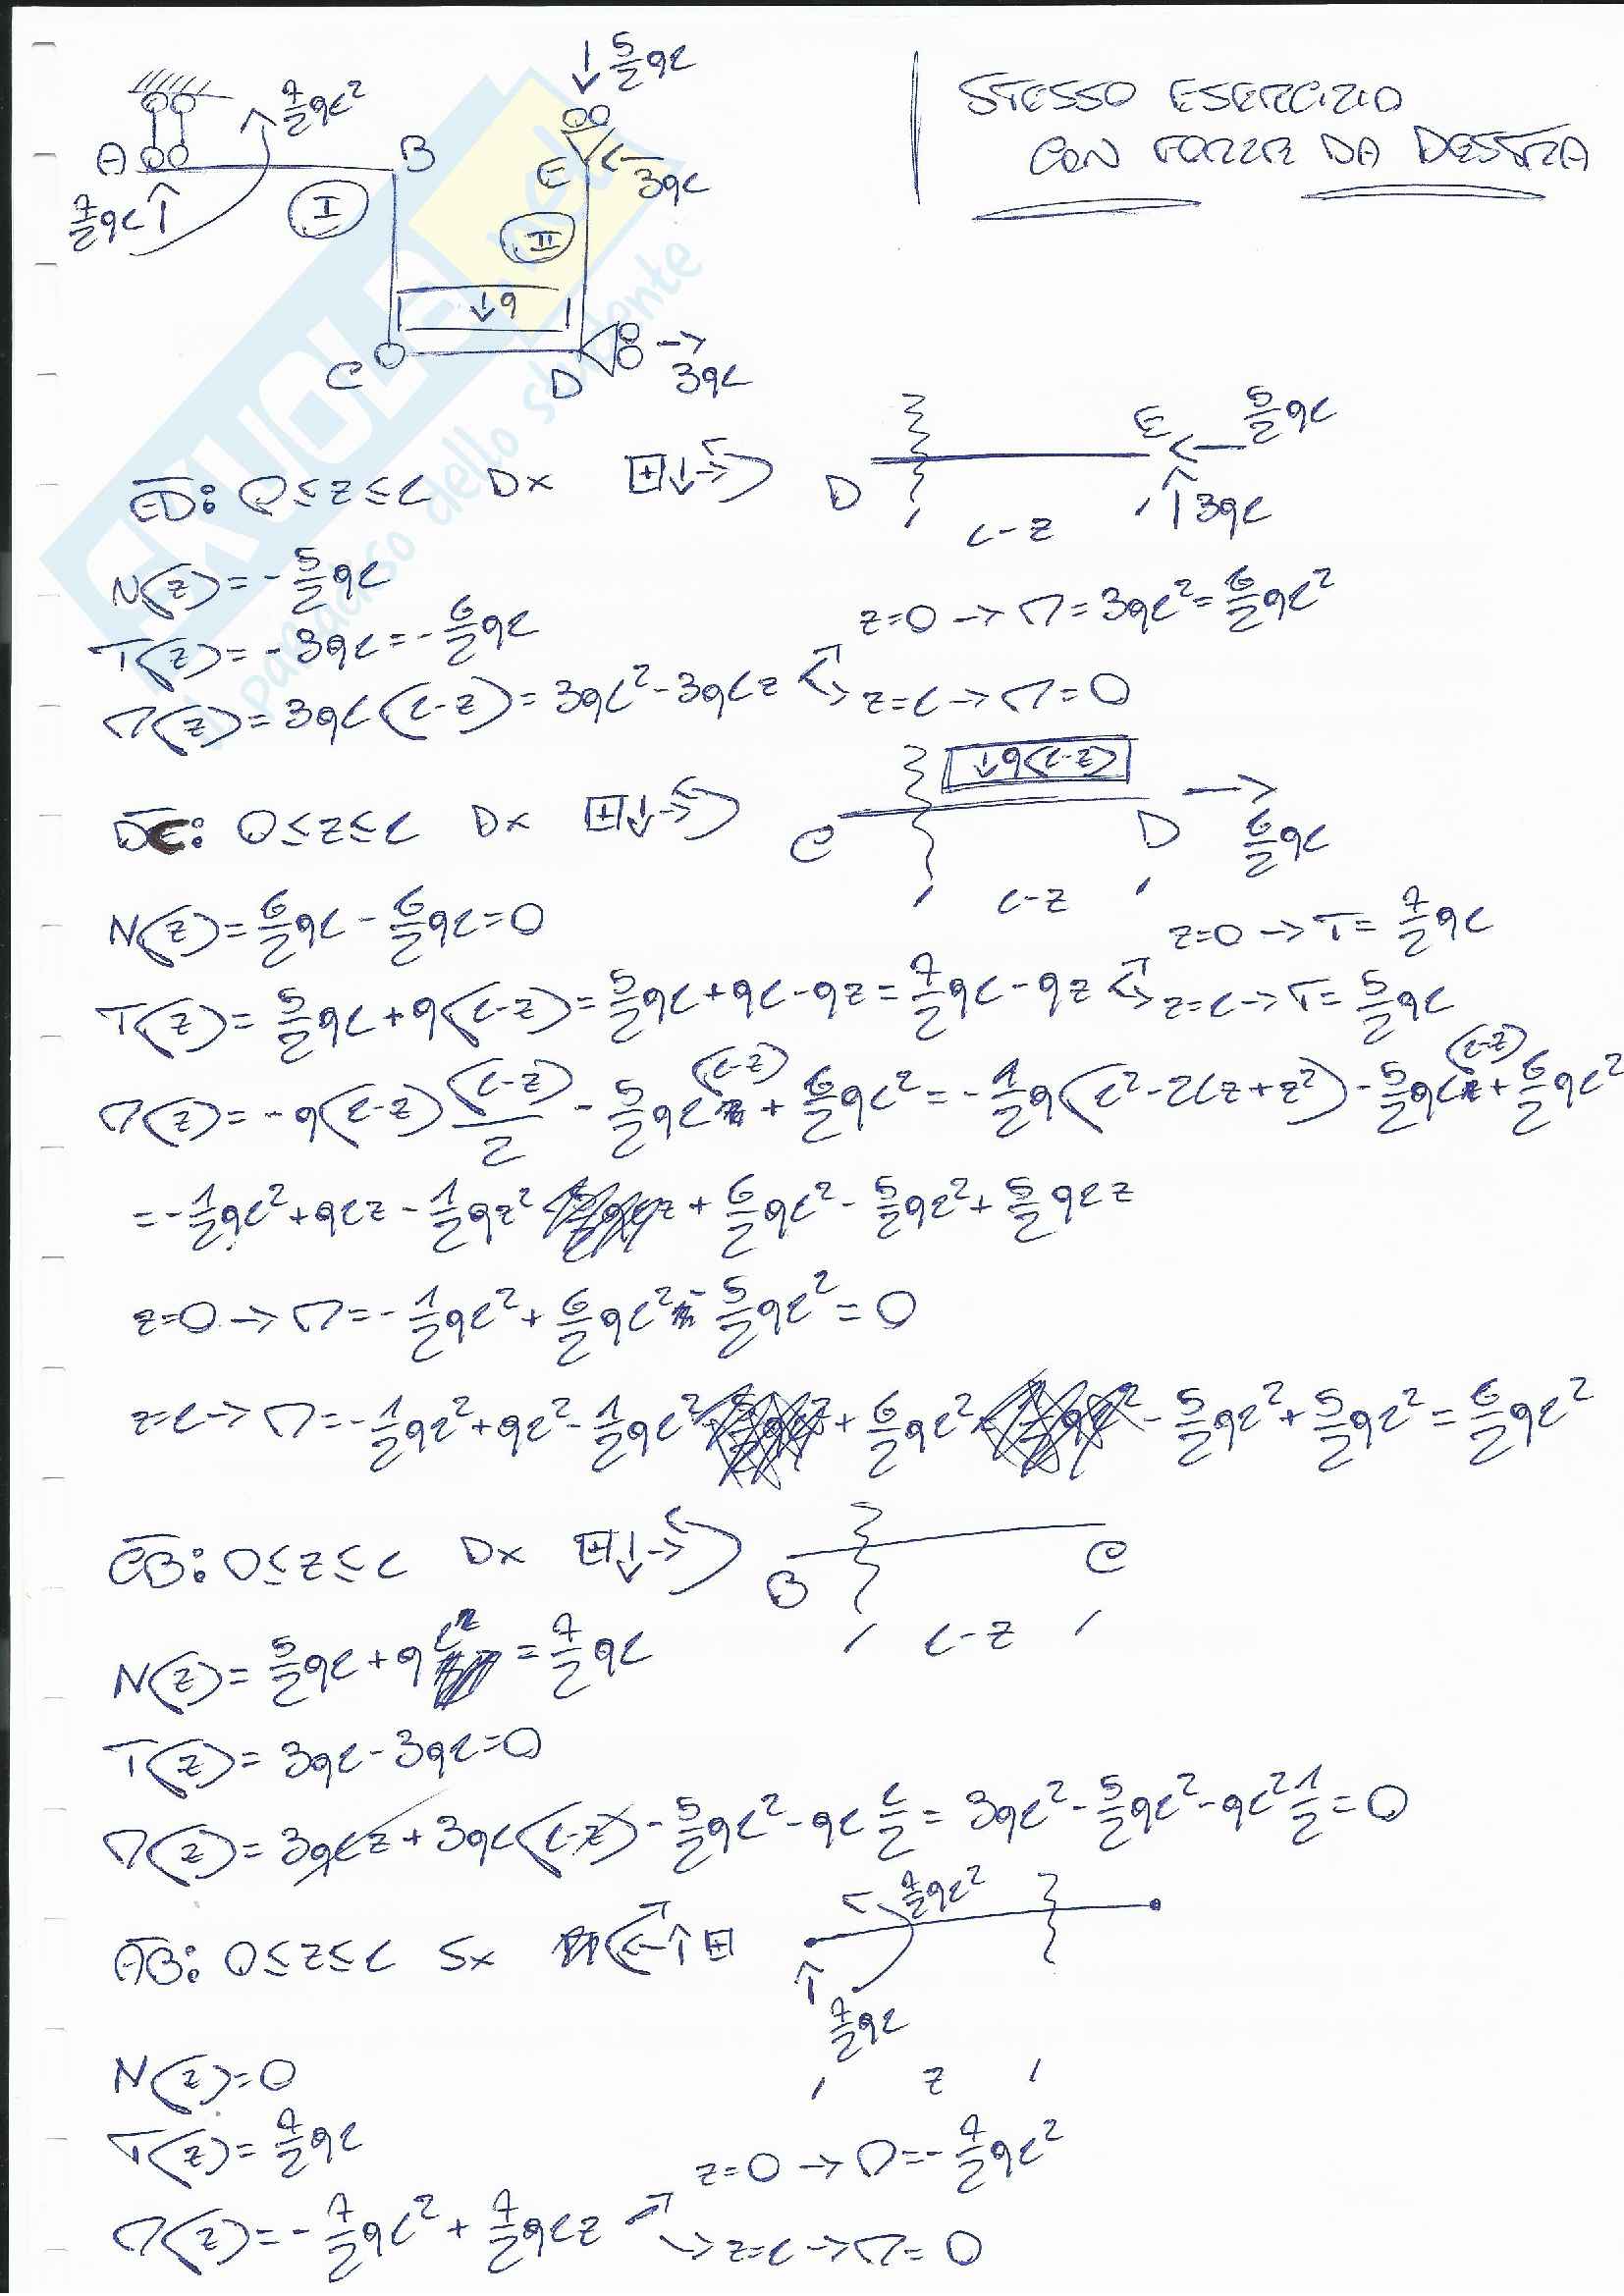 ↓ 5/2 qL
STESSO ESERCIZIO
CON FORZE DA DESTRA
7/2 qL²
A
B
E
← 3qL
7/2 qL ↑
I
II
↓q
C
D
→ 3qL
ED: 0≤z≤L Dx + ↓→
D
E ← 5/2 qL
↑ 3qL
L-z
N(z) = -5/2 qL
T(z) = -3qL = -6/2 qL
M(z) = 3qL(L-z) = 3qL² - 3qLz
z=0 → M = 3qL² = 6/2 qL²
z=L → M = 0
↓q(L-z)
DC: 0≤z≤L Dx + ↓→
C
D → 6/2 qL
L-z
N(z) = 6/2 qL - 6/2 qL = 0
T(z) = 5/2 qL + q(L-z) = 5/2 qL + qL - qz = 7/2 qL - qz
z=0 → T = 7/2 qL
z=L → T = 5/2 qL
M(z) = -q(L-z) (L-z)/2 - 5/2 qL (L-z) + 6/2 qL² = -1/2 q(L² - 2Lz + z²) - 5/2 qL (L-z) + 6/2 qL²
= -1/2 qL² + qLz - 1/2 qz² + 6/2 qL² - 5/2 qL² + 5/2 qLz
z=0 → M = -1/2 qL² + 6/2 qL² - 5/2 qL² = 0
z=L → M = -1/2 qL² + qL² - 1/2 qL² + 6/2 qL² - 5/2 qL² + 5/2 qL² = 6/2 qL²
CB: 0≤z≤L Dx + ↓→
B
C
L-z
N(z) = 5/2 qL + qL = 7/2 qL
T(z) = 3qL - 3qL = 0
M(z) = 3qLz + 3qL(L-z) - 5/2 qL² - qL L/2 = 3qL² - 5/2 qL² - qL² 1/2 = 0
AB: 0≤z≤L Sx ←↑ +
7/2 qL²
↑ 7/2 qL
z
N(z) = 0
T(z) = 7/2 qL
M(z) = -7/2 qL² + 7/2 qLz
z=0 → M = -7/2 qL²
z=L → M = 0